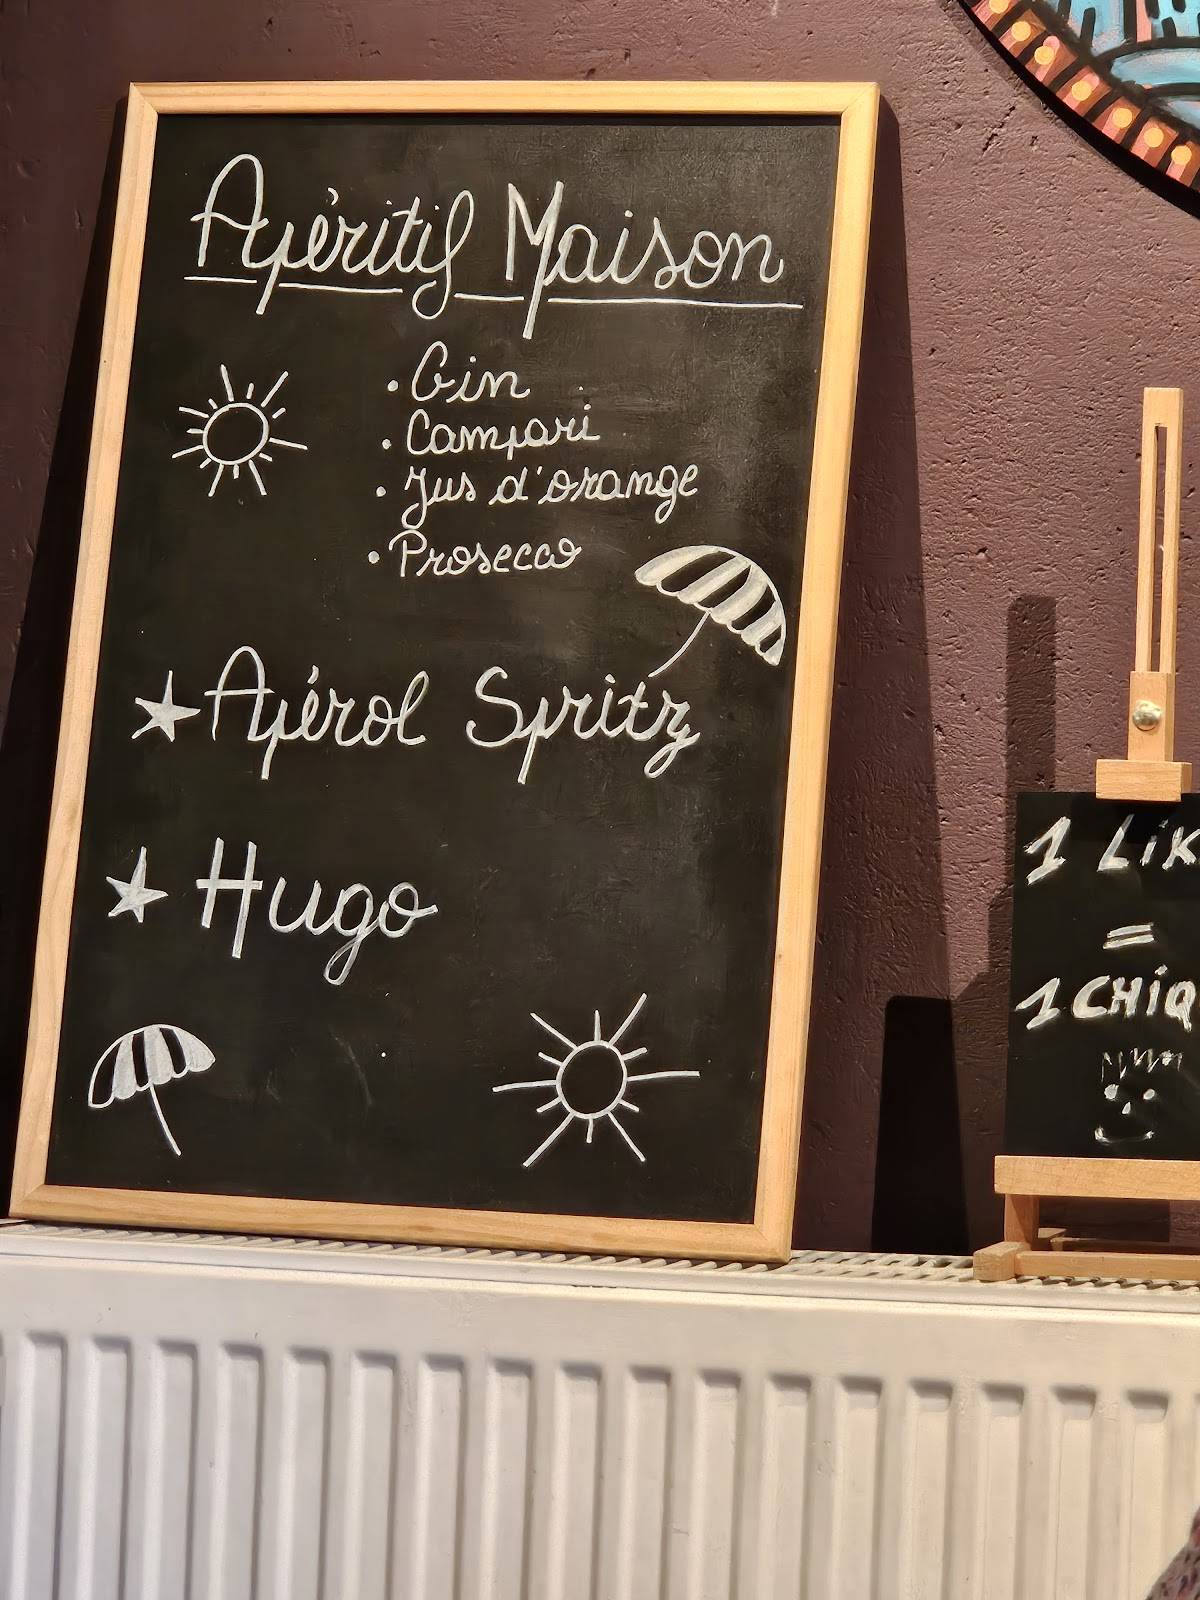 Apéritif Maison
• Gin
• Campari
• Jus d'orange
• Prosecco
Apérol Spritz
Hugo
1 LiK
=
1 CHiQ